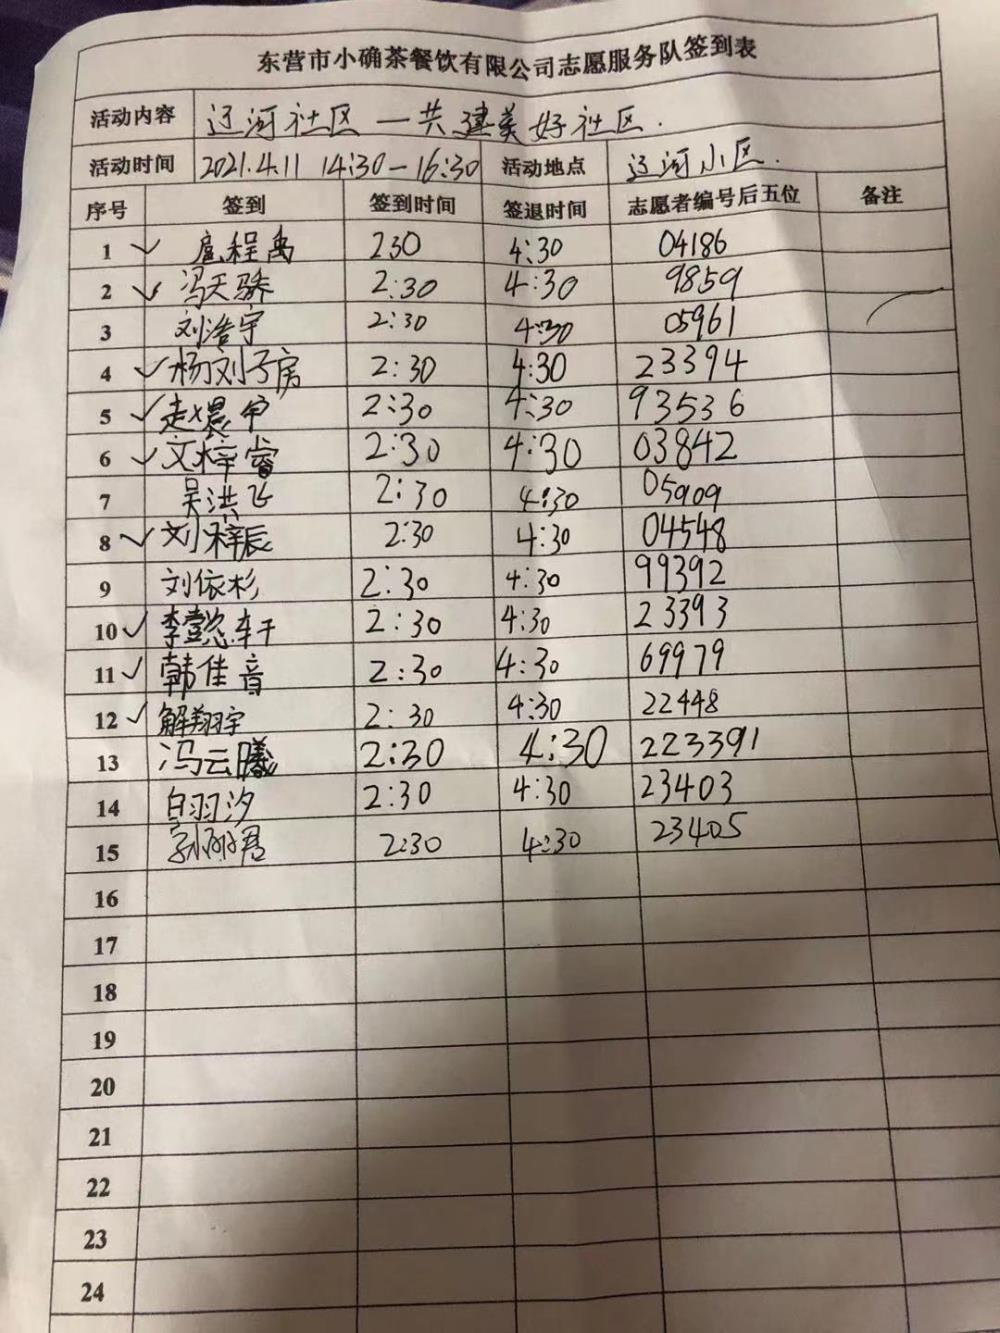 东营市小确茶餐饮有限公司志愿服务队签到表
活动内容 辽河社区一共建美好社区.
活动时间 2021.4.11 14:30-16:30 活动地点 辽河小区.
序号 签到 签到时间 签退时间 志愿者编号后五位 备注
1 ✓ 程禹 230 4:30 04186
2 ✓ 冯天骄 2:30 4:30 9859
3 刘浩宇 2:30 4:30 05961
4 ✓ 杨刘子房 2:30 4:30 23394
5 ✓ 赵晨 2:30 4:30 93536
6 ✓ 文梓睿 2:30 4:30 03842
7 吴洪飞 2:30 4:30 05909
8 ✓ 刘梓辰 2:30 4:30 04548
9 刘依杉 2:30 4:30 99392
10 ✓ 李懿轩 2:30 4:30 23393
11 ✓ 韩佳音 2:30 4:30 69979
12 ✓ 解翔宇 2:30 4:30 22448
13 冯云曦 2:30 4:30 223391
14 白羽汐 2:30 4:30 23403
15 孙君 2:30 4:30 23405
16
17
18
19
20
21
22
23
24